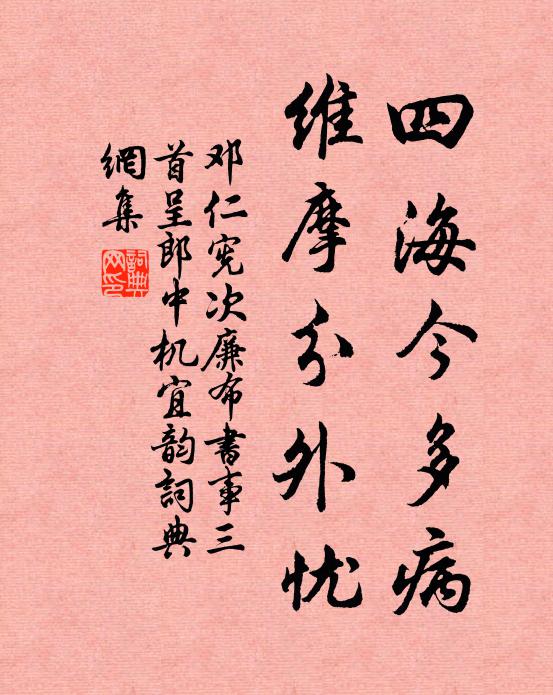 四海今多病
维摩分外忧
邓仁宪次廉布书事三
首呈郎中机宜韵词典
網集
詞典
网印